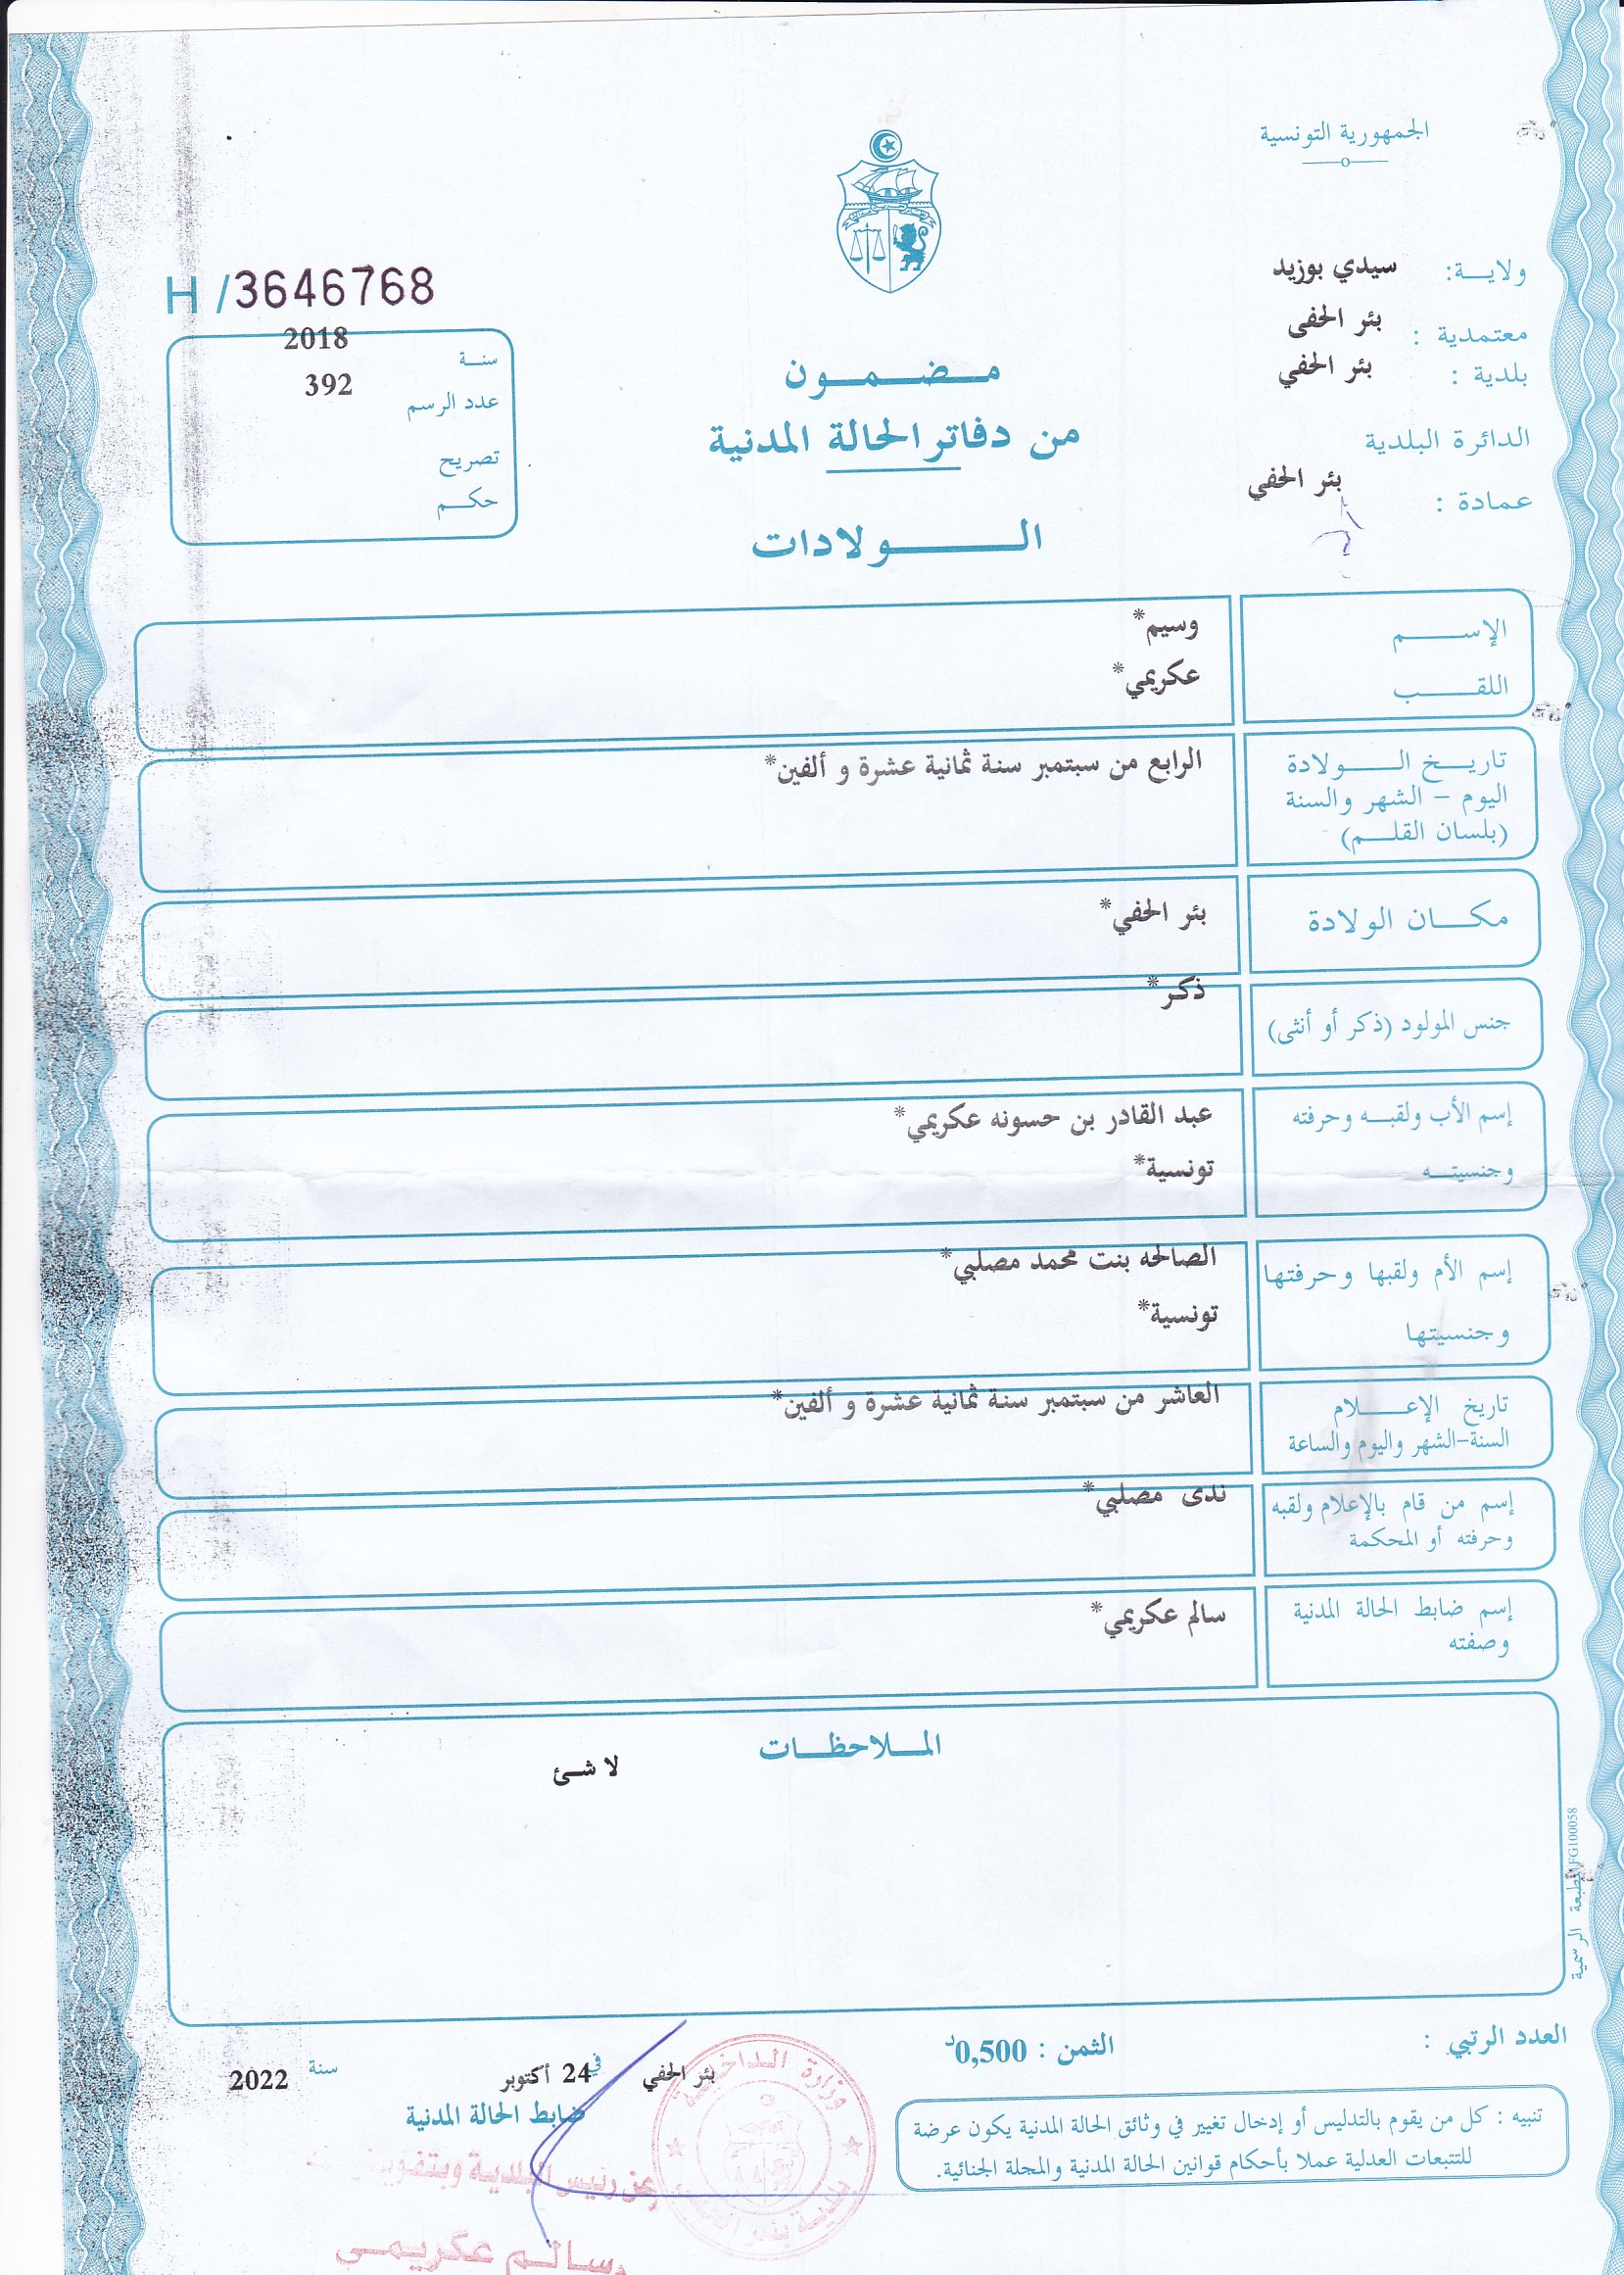 الجمهورية التونسية
ولاية: سيدي بوزيد
معتمدية : بئر الحفى
بلدية : بئر الحفي
الدائرة البلدية
عمادة : بئر الحفي
H /3646768
سنة 2018
عدد الرسم 392
تصريح
حكم
مضمون
من دفاتر الحالة المدنية
الولادات
الإسم وسيم*
اللقب عكريمي*
تاريخ الولادة الرابع من سبتمبر سنة ثمانية عشرة و ألفين*
اليوم - الشهر والسنة
(بلسان القلم)
مكان الولادة بئر الحفي*
جنس المولود (ذكر أو أنثى) ذكر*
إسم الأب ولقبه وحرفته عبد القادر بن حسونه عكريمي*
وجنسيته تونسية*
إسم الأم ولقبها وحرفتها الصالحه بنت محمد مصلبي*
وجنسيتها تونسية*
تاريخ الإعلام العاشر من سبتمبر سنة ثمانية عشرة و ألفين*
السنة-الشهر واليوم والساعة
إسم من قام بالإعلام ولقبه ندى مصلبي*
وحرفته أو المحكمة
إسم ضابط الحالة المدنية سالم عكريمي*
وصفته
الملاحظات
لا شئ
المطبعة الرسمية FG100058
العدد الرتبي :
الثمن : 0,500د
بئر الحفي في 24 أكتوبر سنة 2022
ضابط الحالة المدنية
تنبيه : كل من يقوم بالتدليس أو إدخال تغيير في وثائق الحالة المدنية يكون عرضة
للتتبعات العدلية عملا بأحكام قوانين الحالة المدنية والمجلة الجنائية.
وزارة الداخلية
بلدية بئر الحفي
عن رئيس البلدية وبتفويض
سالم عكريمي